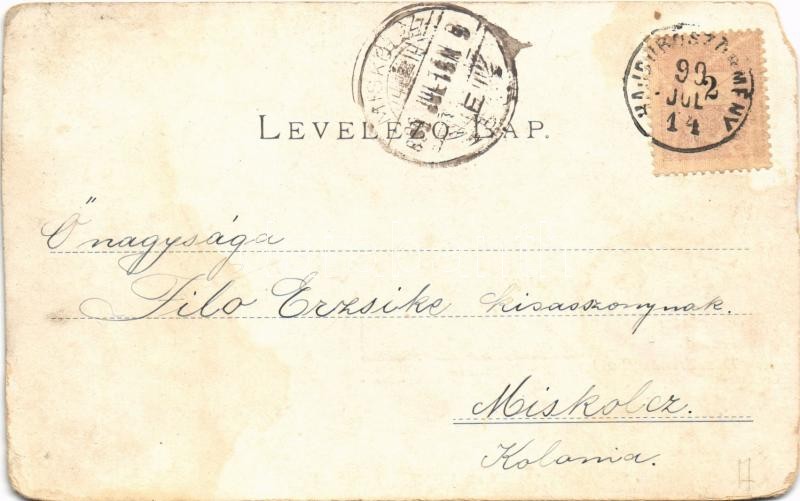 LEVELEZŐ LAP.
HAJDUBÖSZÖRMÉNY
90
JUL
14
2
MISKOLCZ
Ő nagysága
Filo Erzsike kisasszonynak.
Miskolcz.
Kolonia.